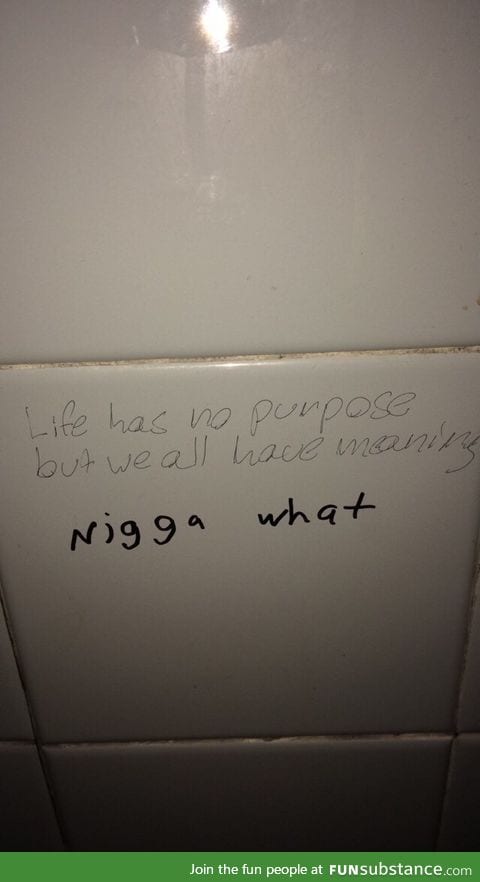 Life has no purpose
but we all have meaning
Nigga what
Join the fun people at FUNsubstance.com